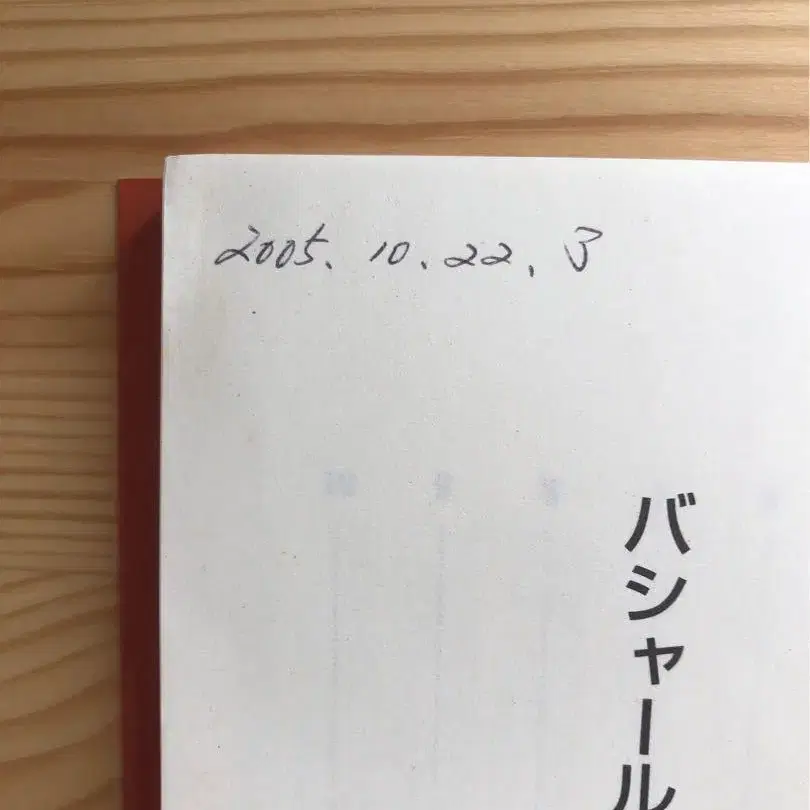 2005. 10. 22. 3
バシャール